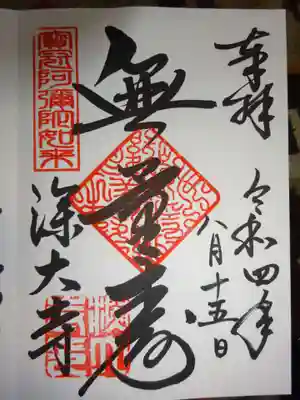 奉拝
令和四年
八月十五日
無量寿
寳冠阿彌陀如来
深大寺